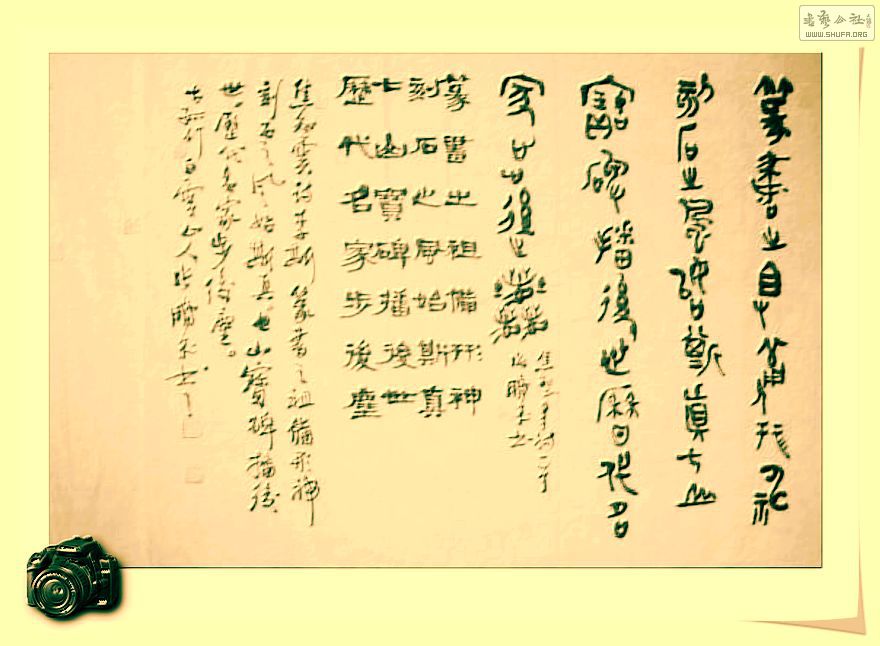 書藝公社
WWW.SHUFA.ORG
篆書之且葡形神
刻石之風始斯真七山
寶碑播後世歷代名
家步後塵
篆書之祖備形神
刻石之風始斯真
七山寶碑播後世
歷代名家步後塵
焦知雲詩李斯篆書之祖備形神
刻石之风始斯真七山寶碑播後
世。歷代名家步後塵。
白雲山人